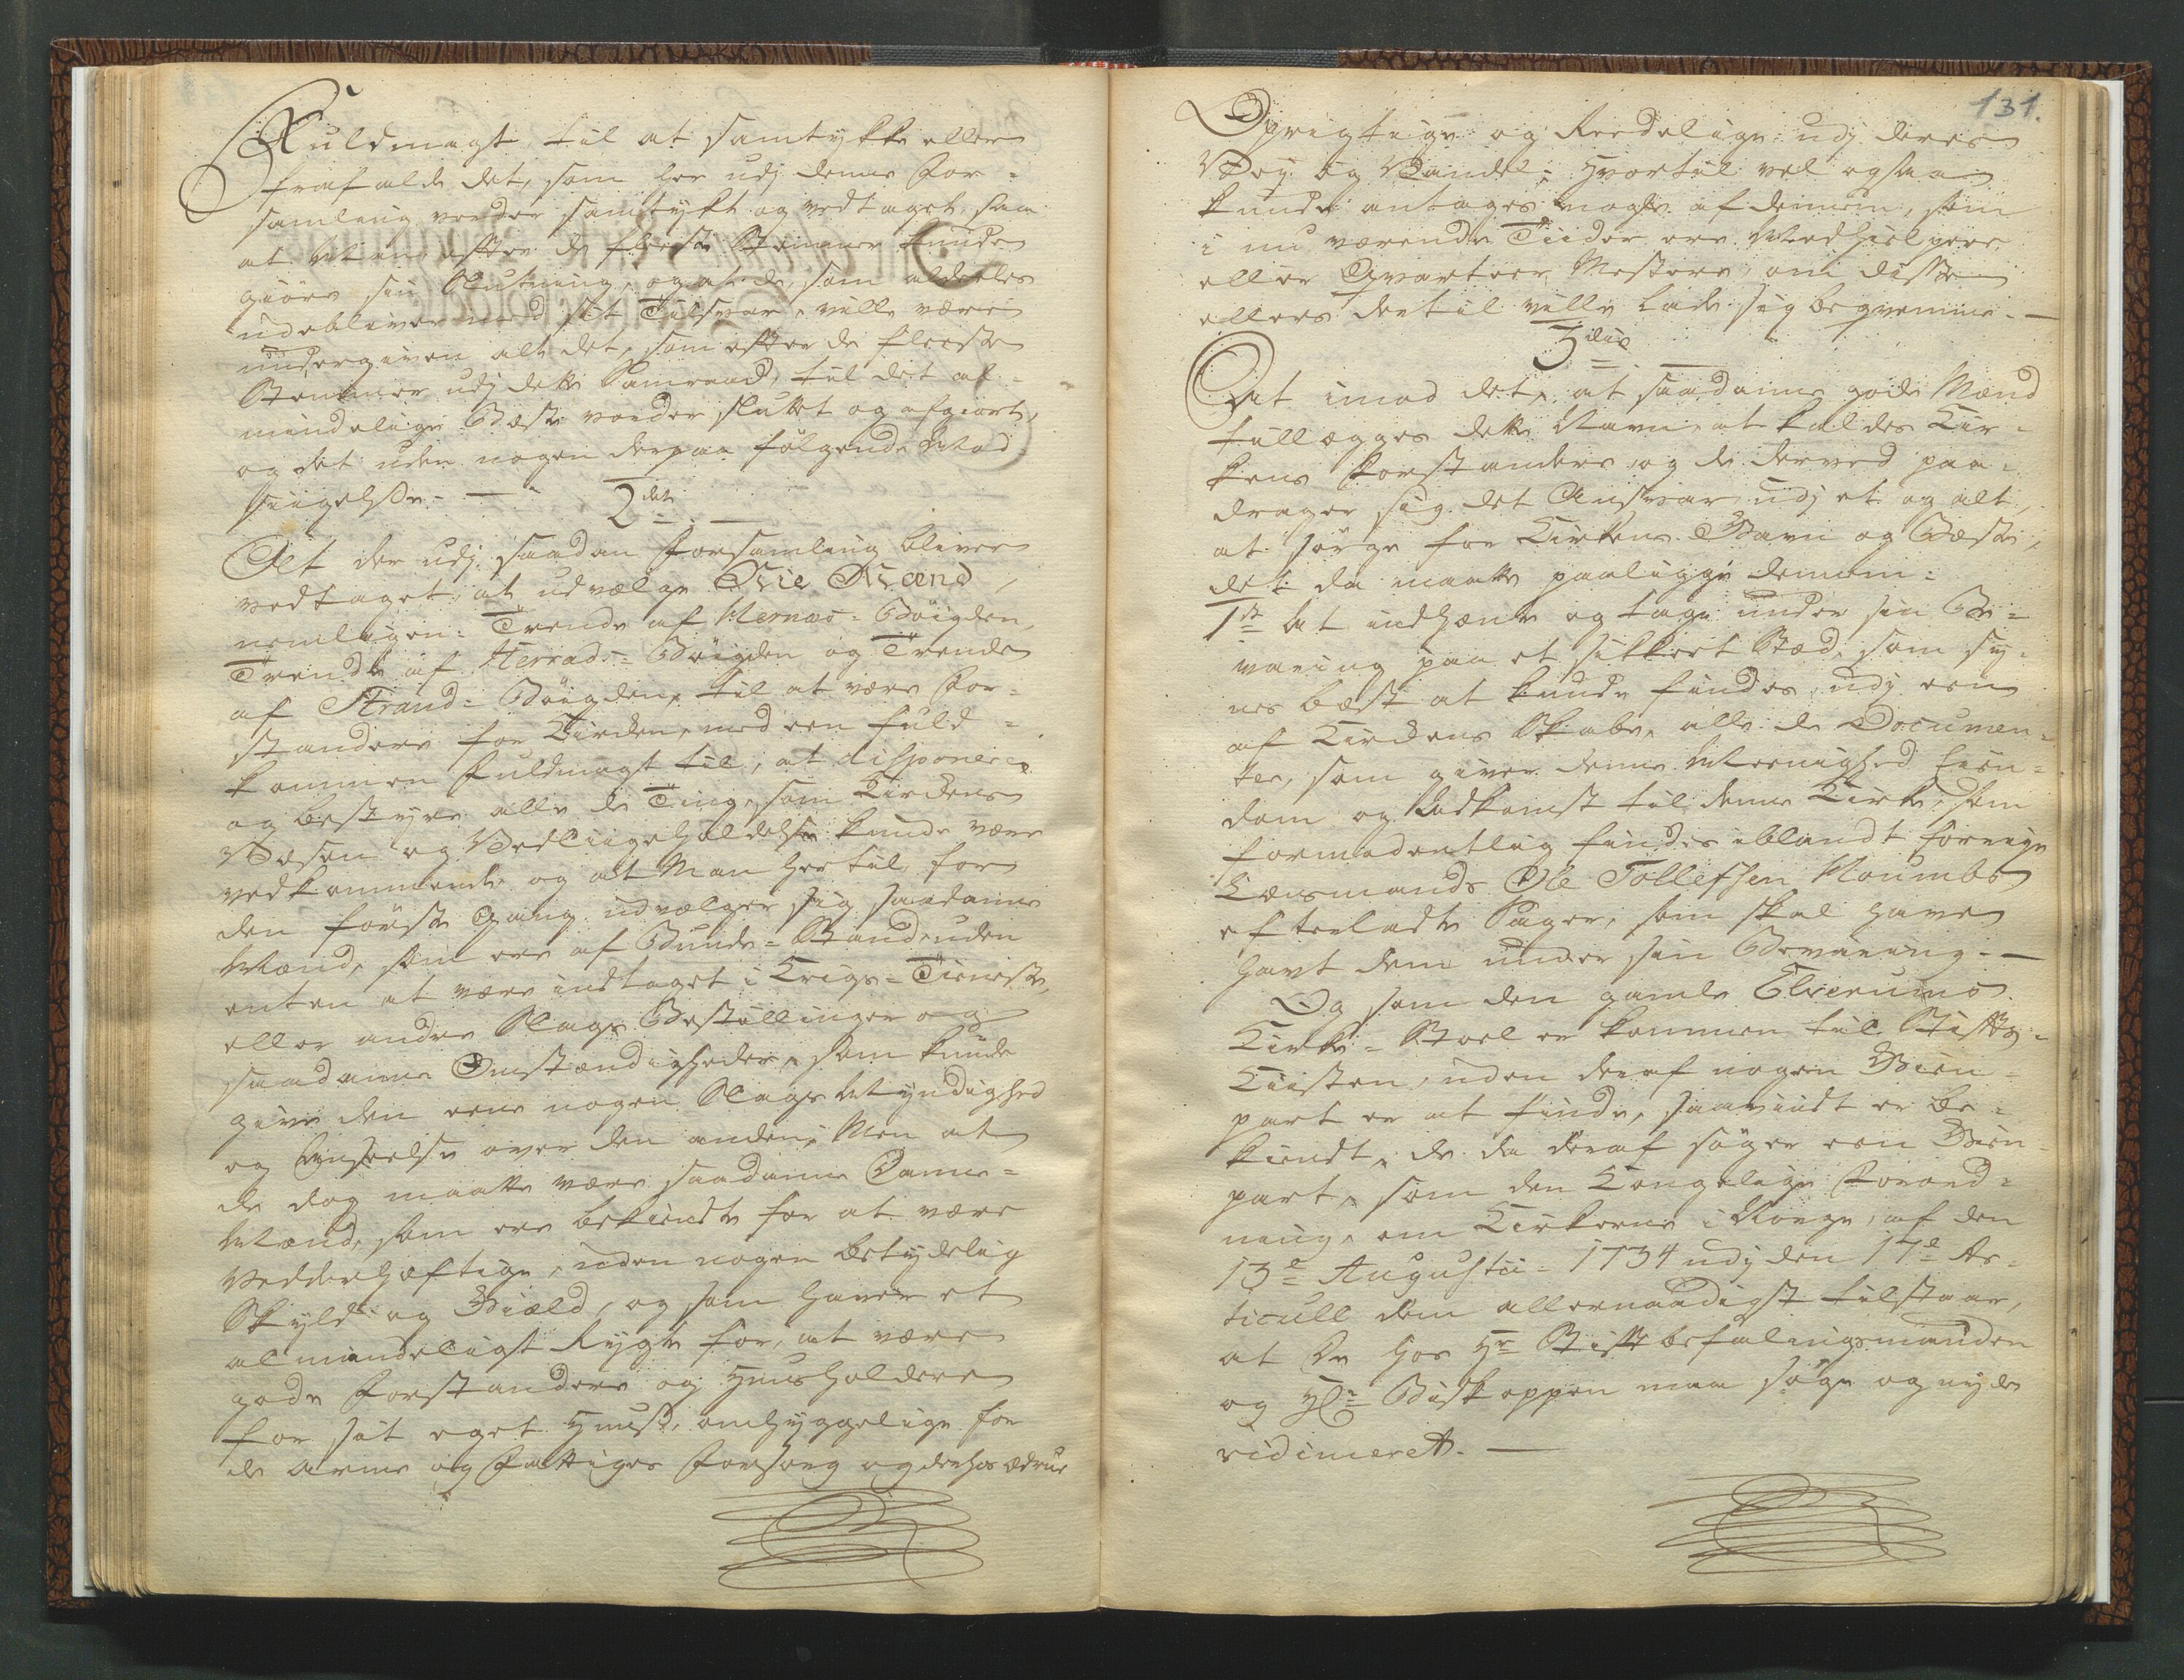 Fuldmagt til at samtykke eller
frafalde det, som her udj denne For-
samling vorder samtykt og vedtaget, saa
at Man efter de fleeste Stemmer kunde
giöre sin Slutning, og at de, som aldeeles
udebliver med sit Tilsvar, ville være
undergiven alt det, som efter de fleeste
Stemmer udj dette Samraad, til det al-
mindelige Beste vorder sluttet og afgiort,
og det uden nogen derpaa fölgende Mod-
sigelse. —
2det. —
At der udj saadan Forsamling bliver
vedtaget, at udvælge Nie Mænd,
nemligen: Trende af Hernæs-Böigden,
Trende af Herrads-Böigden og Trende
af Strand-Böigden, til at være For-
standere for Kirken, med een fuld-
kommen Fuldmagt til, at disponere
og bestyre alle de Ting, som Kirkens
Væsen og Vedligeholdelse kunde være
vedkommende, og at Man her til, for
den förste Gang udvælger sig saadanne
Mænd, som ere af Bonde-Stand, uden
enten at være indtaget i Krigs-Tieneste,
eller andre Slags Bestillinger og
saadanne Omstændigheder, som kunde
give den eene nogen Slags Myndighed
og Anseelse over den anden, Men at
de dog maatte være saadanne Danne-
Mænd, som ere bekiendte for at være
Vederhæftige, uden nogen betydelig
Skyld og Giæld, og som haver et
almindeligt Rygte for, at være
gode Forstandere og Huusholdere
for sit eget Huus, omhyggelige for
de arme og Fattiges Forsorg og derhos ædrue
131.
Oprigtige og Reedelige udj deres
Vej og Vandel; Hvortil vel ogsaa
kunde antages nogle af dennem, som
i nu værende Tiider ere Medhielpere
eller Qvarteer Mestere, om disse
ellers dertil ville lade sig beqvemme. —
3die. —
At imod det, at saadanne gode Mænd
tillægges dette Navn, at kaldes Kir-
kens Forstandere, og de derved paa-
drager sig det Ansvar udj et og alt,
at sörge for Kirkens Gavn og Beste,
det da maatte paaligge dennem:
1st At indhænte og tage under sin Be-
varing paa et sikkert Sted, som sy-
nes best at kunde findes, udj een
af Kirkens Skabe, alle de Documen-
ter, som giver denne Meenighed Eien-
dom og Adkomst til denne Kirke, som
formodentlig findes iblandt forrige
Lænsmands Ole Tollefsen Noumbs
efterladte Sager, som skal have
havt dem under sin Bevaring. —
Og som den gamle Elverums
Kirke-Stoel er kommen til Stifts-
Kiisten, uden deraf nogen Gien-
part er at finde, saaviidt er be-
kiendt, de da deraf söger een Gien-
part, som den Kongelige Forord-
ning, om Kirkerne i Norge, af den
13e Augusti 1734 udj den 17de Ar-
ticull dem allernaadigst tilstaar,
at De hos Hr Stiftbefalingsmanden
og Hr Biskoppen maa söge og nyde
vidimeret. —